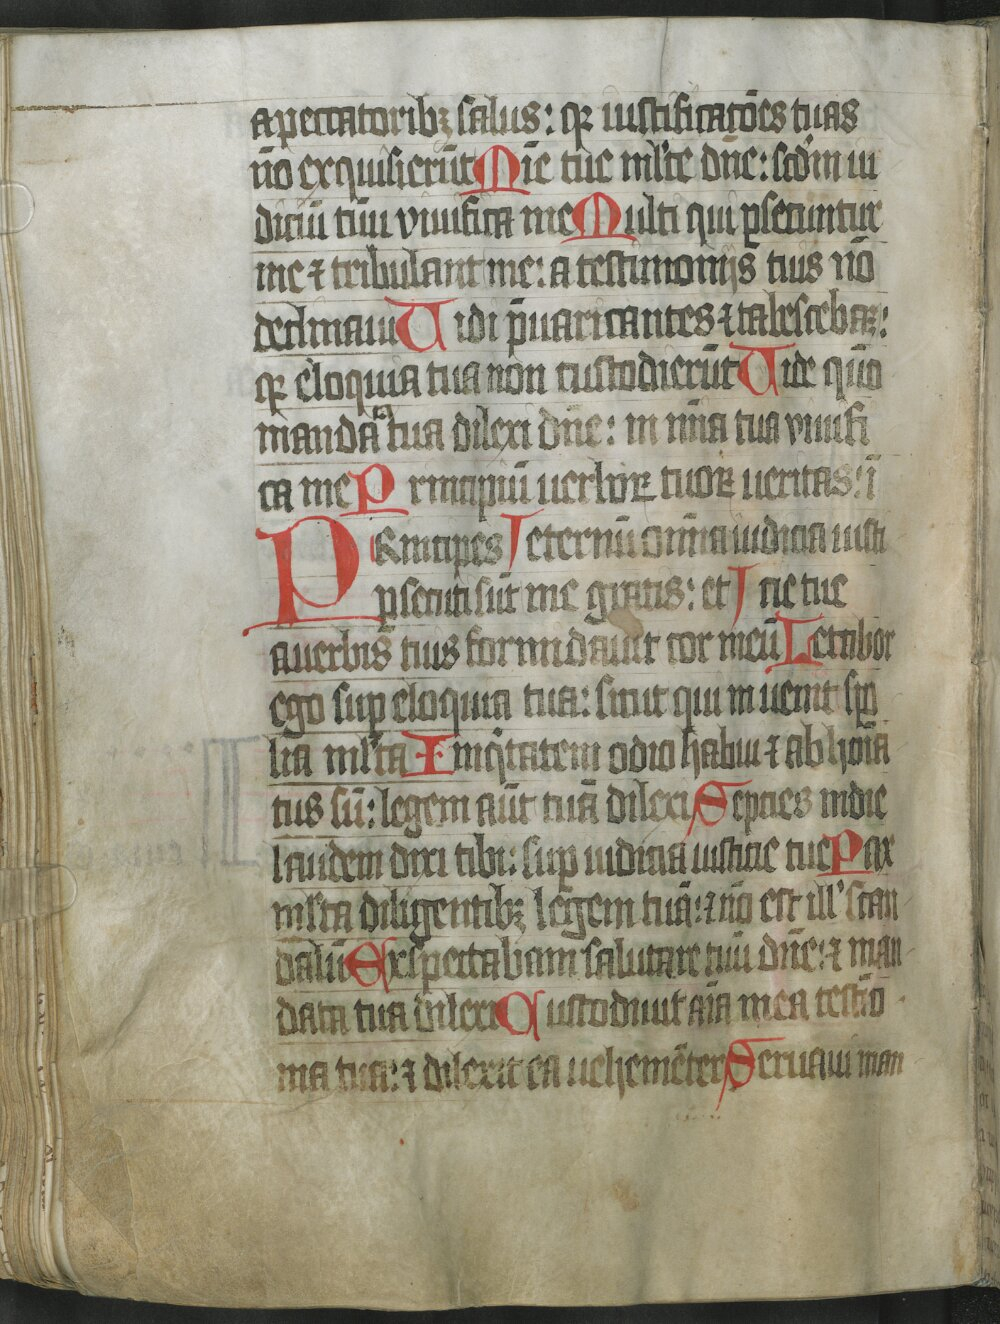 a peccatoribꝫ salus: qꝛ iustificacōes tuas
nō exquisierūt Mīe tue ml'te dn̄e: scd'm iu
diciū tuū viuifica me Multi qui ꝑsecuntur
me ⁊ tribulant me: a testimonijs tuis nō
declinaui Uidi p̄uaricantes ⁊ tabescebaꝫ:
qꝛ eloquia tua non custodierūt Uide qm̄o
mandata tua dilexi dn̄e: in mīa tua viuifi
ca me Principiū verboꝝ tuoꝝ veritas: ī
PRincipes eternū om̄ia iudicia iusti
ꝑsecuti sūt me gratis: et cie tue
a verbis tuis formidauit cor meū Letabor
ego suꝑ eloquia tua: sicut qui inuenit spo
lia ml'ta Iniq̇tatem odio habui ⁊ abhoīa
tus sū: legem aūt tuā dilexi Septies in die
laudem dixi tibi: suꝑ iudicia iusticie tue Pax
ml'ta diligentibꝫ legem tuā: ⁊ nō est ill' scan
dalū Exspectabam salutare tuū dn̄e: ⁊ man
data tua dilexi Custodiuit aīa mea testīo
nia tua: ⁊ dilexit ea vehemēter Seruaui man